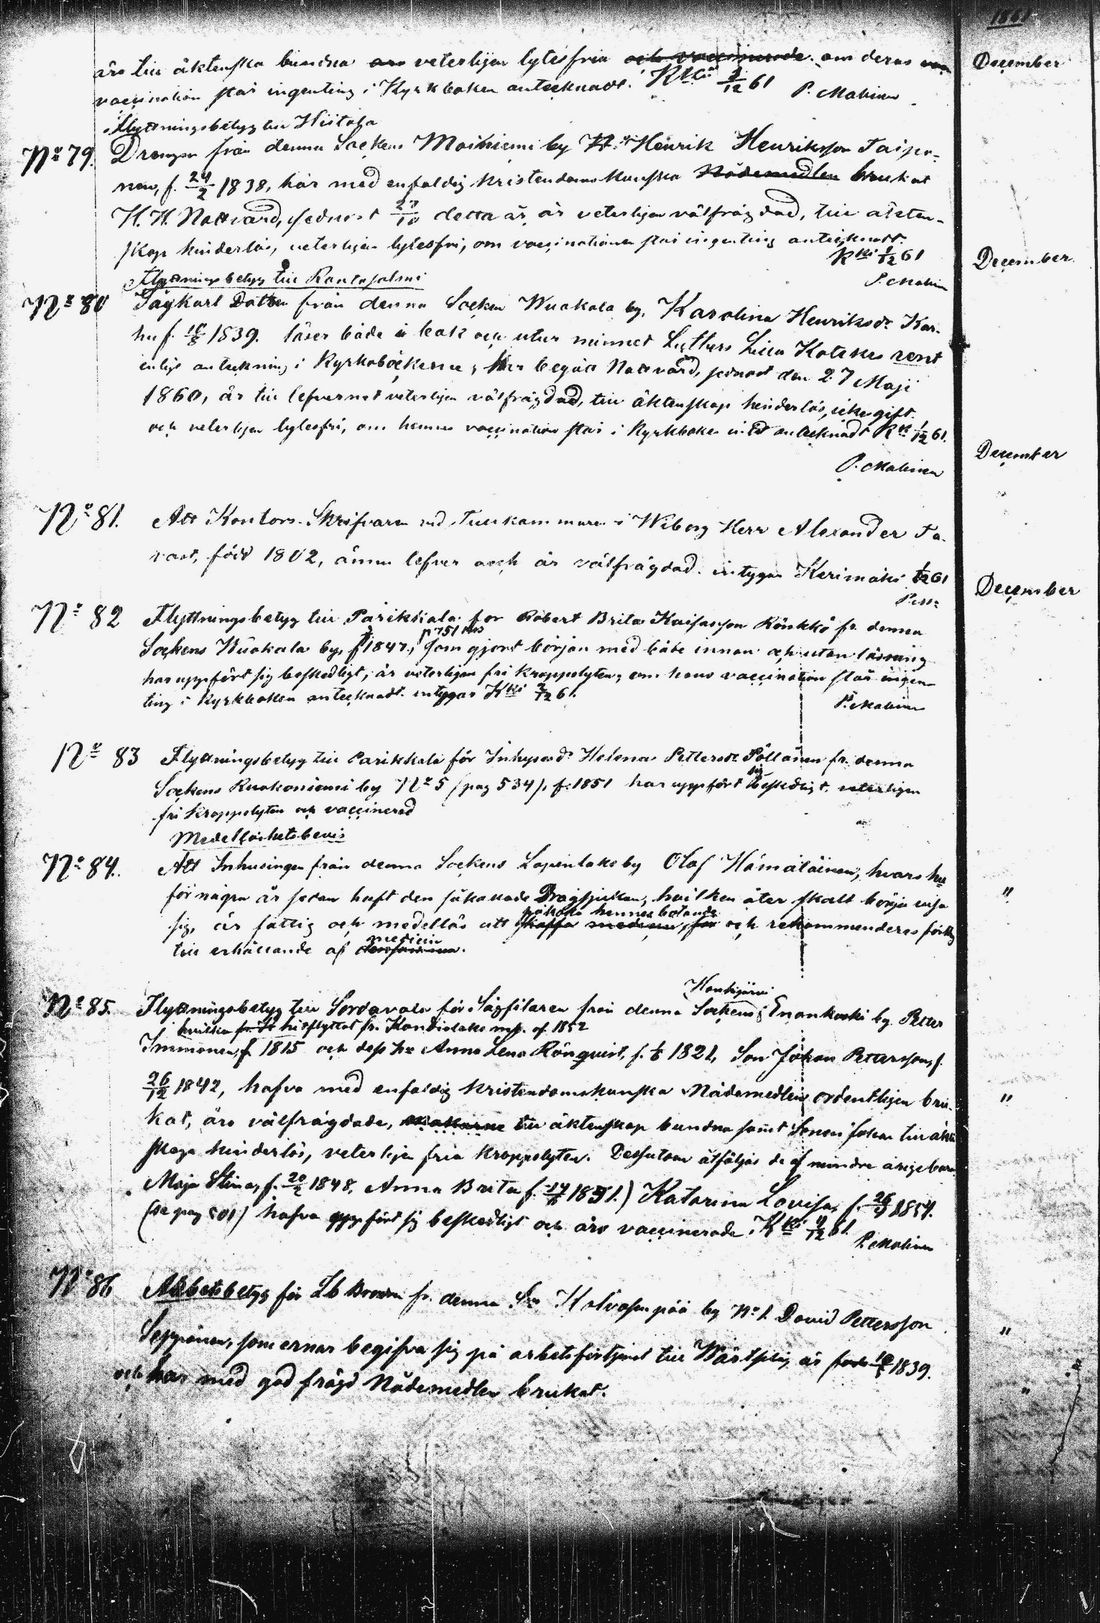 1861
äro till äktenskap bundna veterligen lytesfria och vaccinerade om deras
vaccination står ingenting i Kyrkboken antecknadt. K:ki 3/12 61 P. Malinen
December
Flyttningsbetyg till Hiitola
No 79. Drengen från denna Sockens Moihiemi by Henrik Henriksson Taipa-
nen, f. 24/2 1838, har med enfaldig kristendoms kunskap Nådemedlen brukat
H. H. Nattvard, sednast 27/10 detta år, är veterligen välfrägdad, till äkten-
skap hinderlös, veterligen lytesfri, om vaccinationen står ingenting antecknadt.
K:ki 1/12 61
P. Malinen
December
Flyttningsbetyg till Rantasalmi
No 80 från denna Socken Wuokala by, Karolina Henriksdr Kar-
hu f. 1839. läser både i bok och utur minnet Luthers Lilla Kateches rent
enligt anteckning i Kyrkoböckerna, har begått Nattvard, sednast den 27 Maji
1860, är till lefvernet veterligen välfrägdad, till äktenskap hinderlös, icke gift
och veterligen lytesfri, om hennes vaccination står i Kyrkboken intet antecknadt K:ki 1/12 61.
P. Malinen
December
No 81. Att Kontors-Skrifvaren vid Tullkammaren i Wiborg Herr Alexander Ta-
vast, född 1802, ännu lefver och är välfrägdad. intygar Kerimäki 1/12 61
December
No 82 Flyttningsbetyg till Parikkala för Robert Brita Kaisasson Könkkö fr. denna
Sockens Wuokala by, f. 1847, som gjort början med både innan och utan läsning
p 751
har uppfört sig beskedligt, är veterligen fri kroppslyten, om hans vaccination står ingen-
ting i Kyrkboken antecknadt. intygas K:ki 2/12 61. P. Malinen
No 83 Flyttningsbetyg till Parikkala för Inhysesd: Helena Pettersdr Pöllänen fr. denna
Sockens Ruokoniemi by No 5 (pag 534), f. 1851 har uppfört sig beskedligt, veterligen
fri kroppslyten och vaccinerad
Medellöshetsbevis
No 84. Att Inhysingen från denna Sockens Lapinlaks by Olof Hämäläinen, hvars hu
för några år sedan haft den så kallade Dragsjukan, hvilken åter skall börja visa
sig, är fattig och medellös att och rekommenderas
till erhållande af medicin
"
No 85. Flyttningsbetyg till Sordavala för Sågfilaren från denna Sockens Enonkoski by, Petter
hitflyttat fr. Kondiolaks 1852
Immonen, f. 1815 och dess hu Anna Lena Rönqvist, f. 1821, Son Johan Petersson, f.
26/12 1842, hafva med enfaldig kristendomskunskap Nådemedlen ordentligen bru-
kat, äro välfrägdade, makarne till äktenskap bundna samt Sonen Johan till äkten
skap hinderlös, veterligen fria kroppslyten. Dessutom åtföljas de af mindre åriga barn
Maja Stina, f. 20/2 1848, Anna Brita f. 1851.) Katarina Lovisa, f. 1854.
(se pag 501) hafva uppfört sig beskedligt och äro vaccinerade. K:ki 4/12 61
P. Malinen
"
"
No 86 Arbetsbetyg för Lb Brodren fr. denna Sn Kolvosenpää by No 1. David Pettersson
Seppänen, som ernar begifva sig på arbetsförtjenst till Wärtsilä, är född 1839.
och har med god frägd Nådemedlen brukat.
"
"